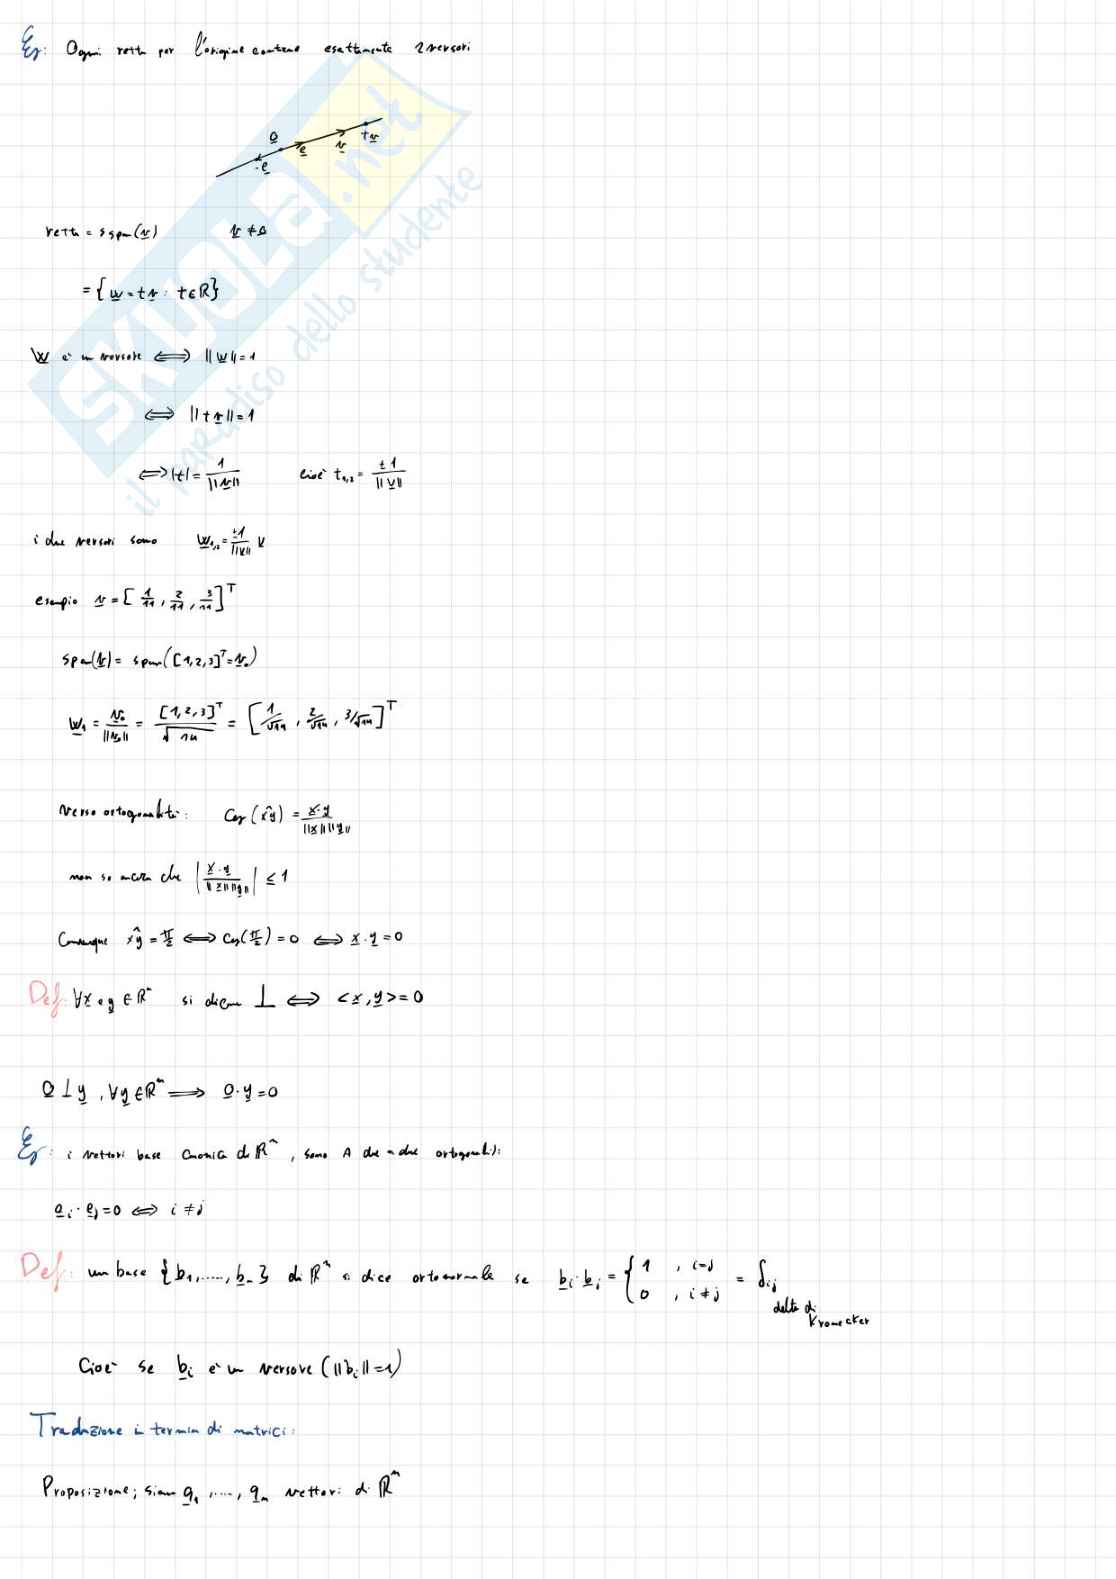 Es: Ogni retta per l'origine contiene esattamente 2 versori
0 e v tv
-e
retta = span(v) v ≠ 0
= { w = tv : t ∈ R }
w è un versore ⟺ ||w|| = 1
⟺ ||tv|| = 1
⟺ |t| = 1/||v|| cioè t₁,₂ = ±1/||v||
i due versori sono w₁,₂ = ±1/||v|| v
esempio v = [ 1/11 , 2/11 , 3/11 ]ᵀ
span(v) = span([1,2,3]ᵀ = v₀)
w₁ = v₀/||v₀|| = [1,2,3]ᵀ/√14 = [ 1/√14 , 2/√14 , 3/√14 ]ᵀ
Verso ortogonalità: Cos(x̂y) = x·y/||x|| ||y||
non so ancora che | x·y/||x|| ||y|| | ≤ 1
Comunque x̂y = π/2 ⟺ Cos(π/2) = 0 ⟺ x·y = 0
Def: ∀x e y ∈ Rⁿ si dicono ⊥ ⟺ <x,y> = 0
0 ⊥ y , ∀y ∈ Rⁿ ⟹ 0·y = 0
Es: i vettori base canonica di Rⁿ, sono A due a due ortogonali:
eᵢ · eⱼ = 0 ⟺ i ≠ j
Def: un base {b₁,....., bₙ} di Rⁿ si dice ortonormale se bᵢ·bⱼ = { 1 , i=j
0 , i≠j = δᵢⱼ
delta di
Kronecker
Cioè se bᵢ è un versore (||bᵢ||=1)
Traduzione in termini di matrici:
Proposizione; siano q₁ ,...., qₙ vettori di Rⁿ
SKUOLA.net
il paradiso dello studente